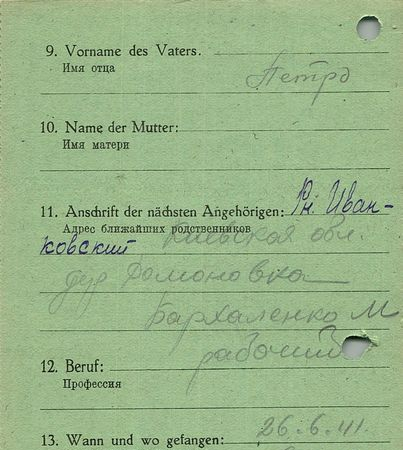 9. Vorname des Vaters.
Имя отца
Петро
10. Name der Mutter:
Имя матери
11. Anschrift der nächsten Angehörigen: Рн. Иван-
Адрес ближайших родственников
ковский Киевская обл.
дер Домоновка
Бархаленко М
рабочий
12. Beruf:
Профессия
26.6.41.
13. Wann und wo gefangen: